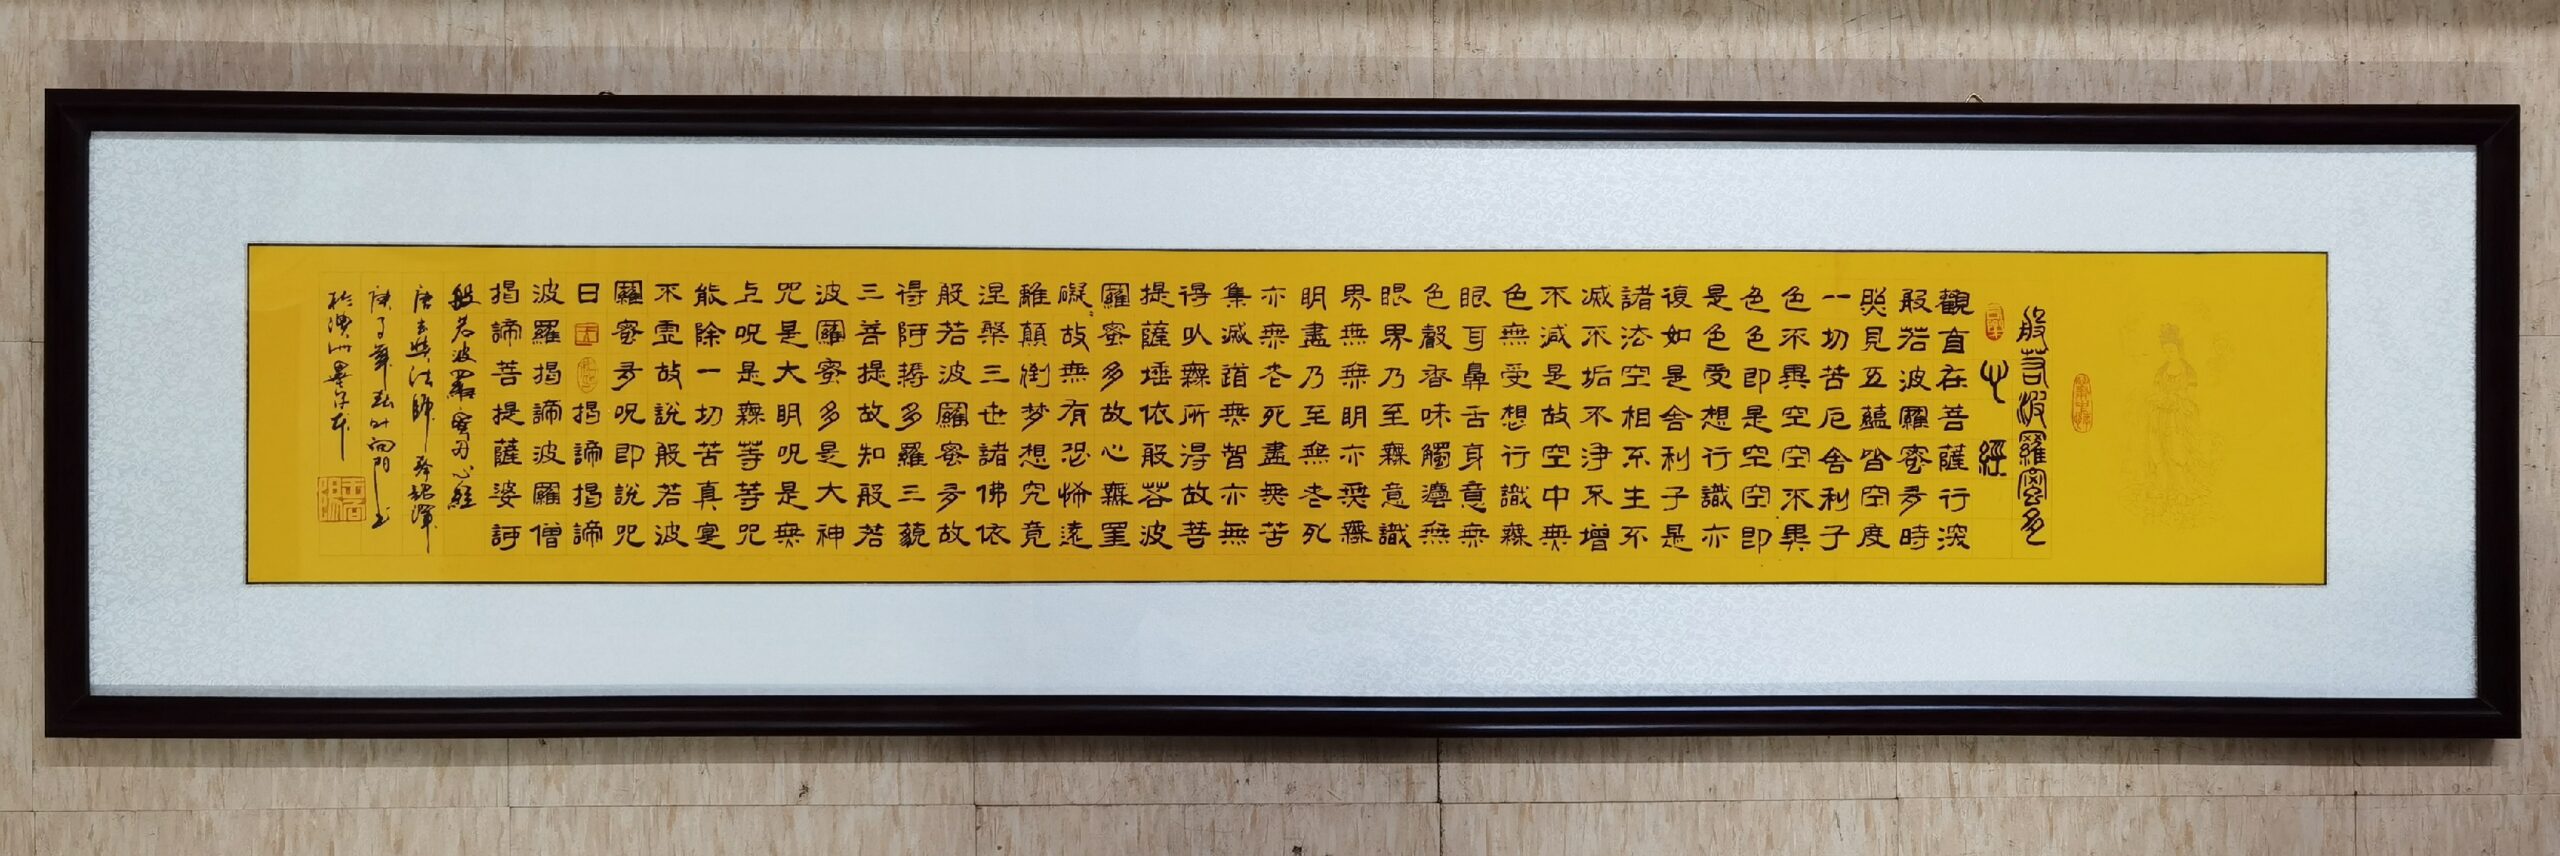 般若波羅蜜多
心經
觀自在菩薩行深
般若波羅蜜多時
照見五蘊皆空度
一切苦厄舍利子
色不異空空不異
色色即是空空即
是色受想行識亦
復如是舍利子是
諸法空相不生不
滅不垢不淨不增
不減是故空中無
色無受想行識無
眼耳鼻舌身意無
色聲香味觸灋無
眼界乃至無意識
界無無明亦無無
明盡乃至無老死
亦無老死盡無苦
集滅道無智亦無
得以無所得故菩
提薩埵依般若波
羅蜜多故心無罣
礙故無有恐怖遠
離顛倒梦想究竟
涅槃三世諸佛依
般若波羅蜜多故
得阿耨多羅三藐
三菩提故知般若
波羅蜜多是大神
咒是大明咒是無
上咒是無等等咒
能除一切苦真實
不虛故說般若波
羅蜜多咒即說咒
曰揭諦揭諦
波羅揭諦波羅僧
揭諦菩提薩婆訶
般若波羅蜜多心經
唐玄奘法師
庚子年秋